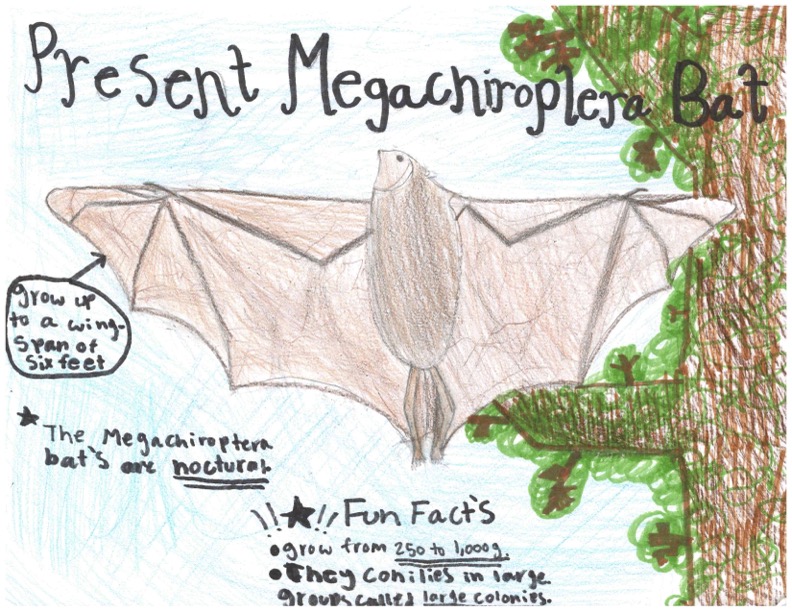 Present Megachiroptera Bat
grow up
to a wing-
span of
six feet
The Megachiroptera
bat's are noctural.
Fun Fact's
grow from 250 to 1,000g.
They conilies in large
groups called large colonies.